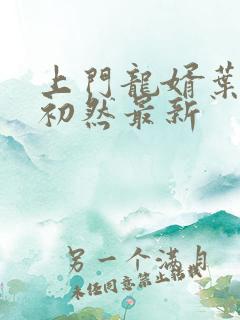 上門龍婿葉
初然最新
另一个满月
未经同意禁止转载